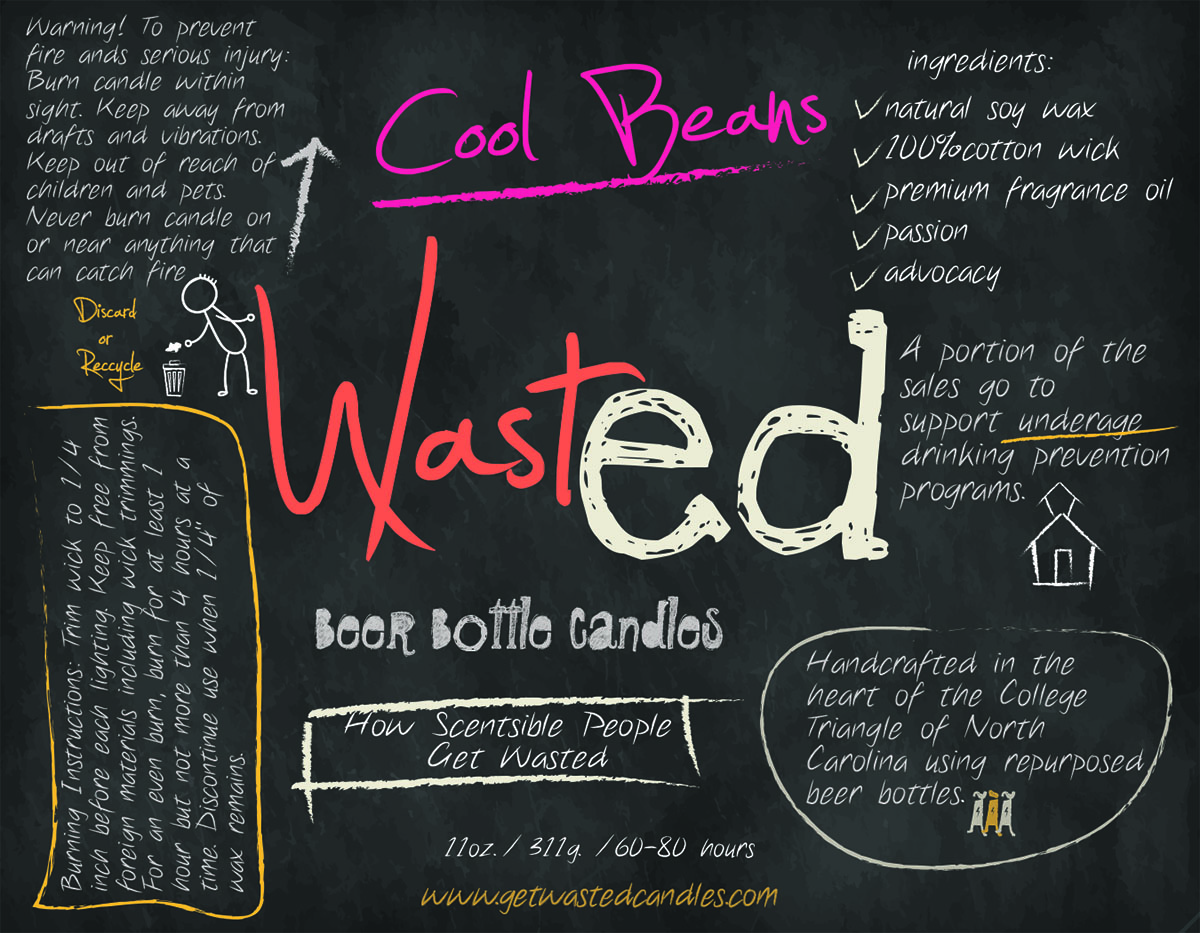 Warning! To prevent
fire ands serious injury:
Burn candle within
sight. Keep away from
drafts and vibrations.
Keep out of reach of
children and pets.
Never burn candle on
or near anything that
can catch fire
Discard
or
Reccycle
Burning Instructions: Trim wick to 1/4
inch before each lighting. Keep free from
foreign materials including wick trimmings.
For an even burn, burn for at least 1
hour but not more than 4 hours at a
time. Discontinue use when 1/4" of
wax remains.
Cool Beans
Wasted
Beer Bottle Candles
How Scentsible People
Get Wasted
11oz. / 311g. / 60-80 hours
www.getwastedcandles.com
ingredients:
natural soy wax
100%cotton wick
premium fragrance oil
passion
advocacy
A portion of the
sales go to
support underage
drinking prevention
programs.
Handcrafted in the
heart of the College
Triangle of North
Carolina using repurposed
beer bottles.